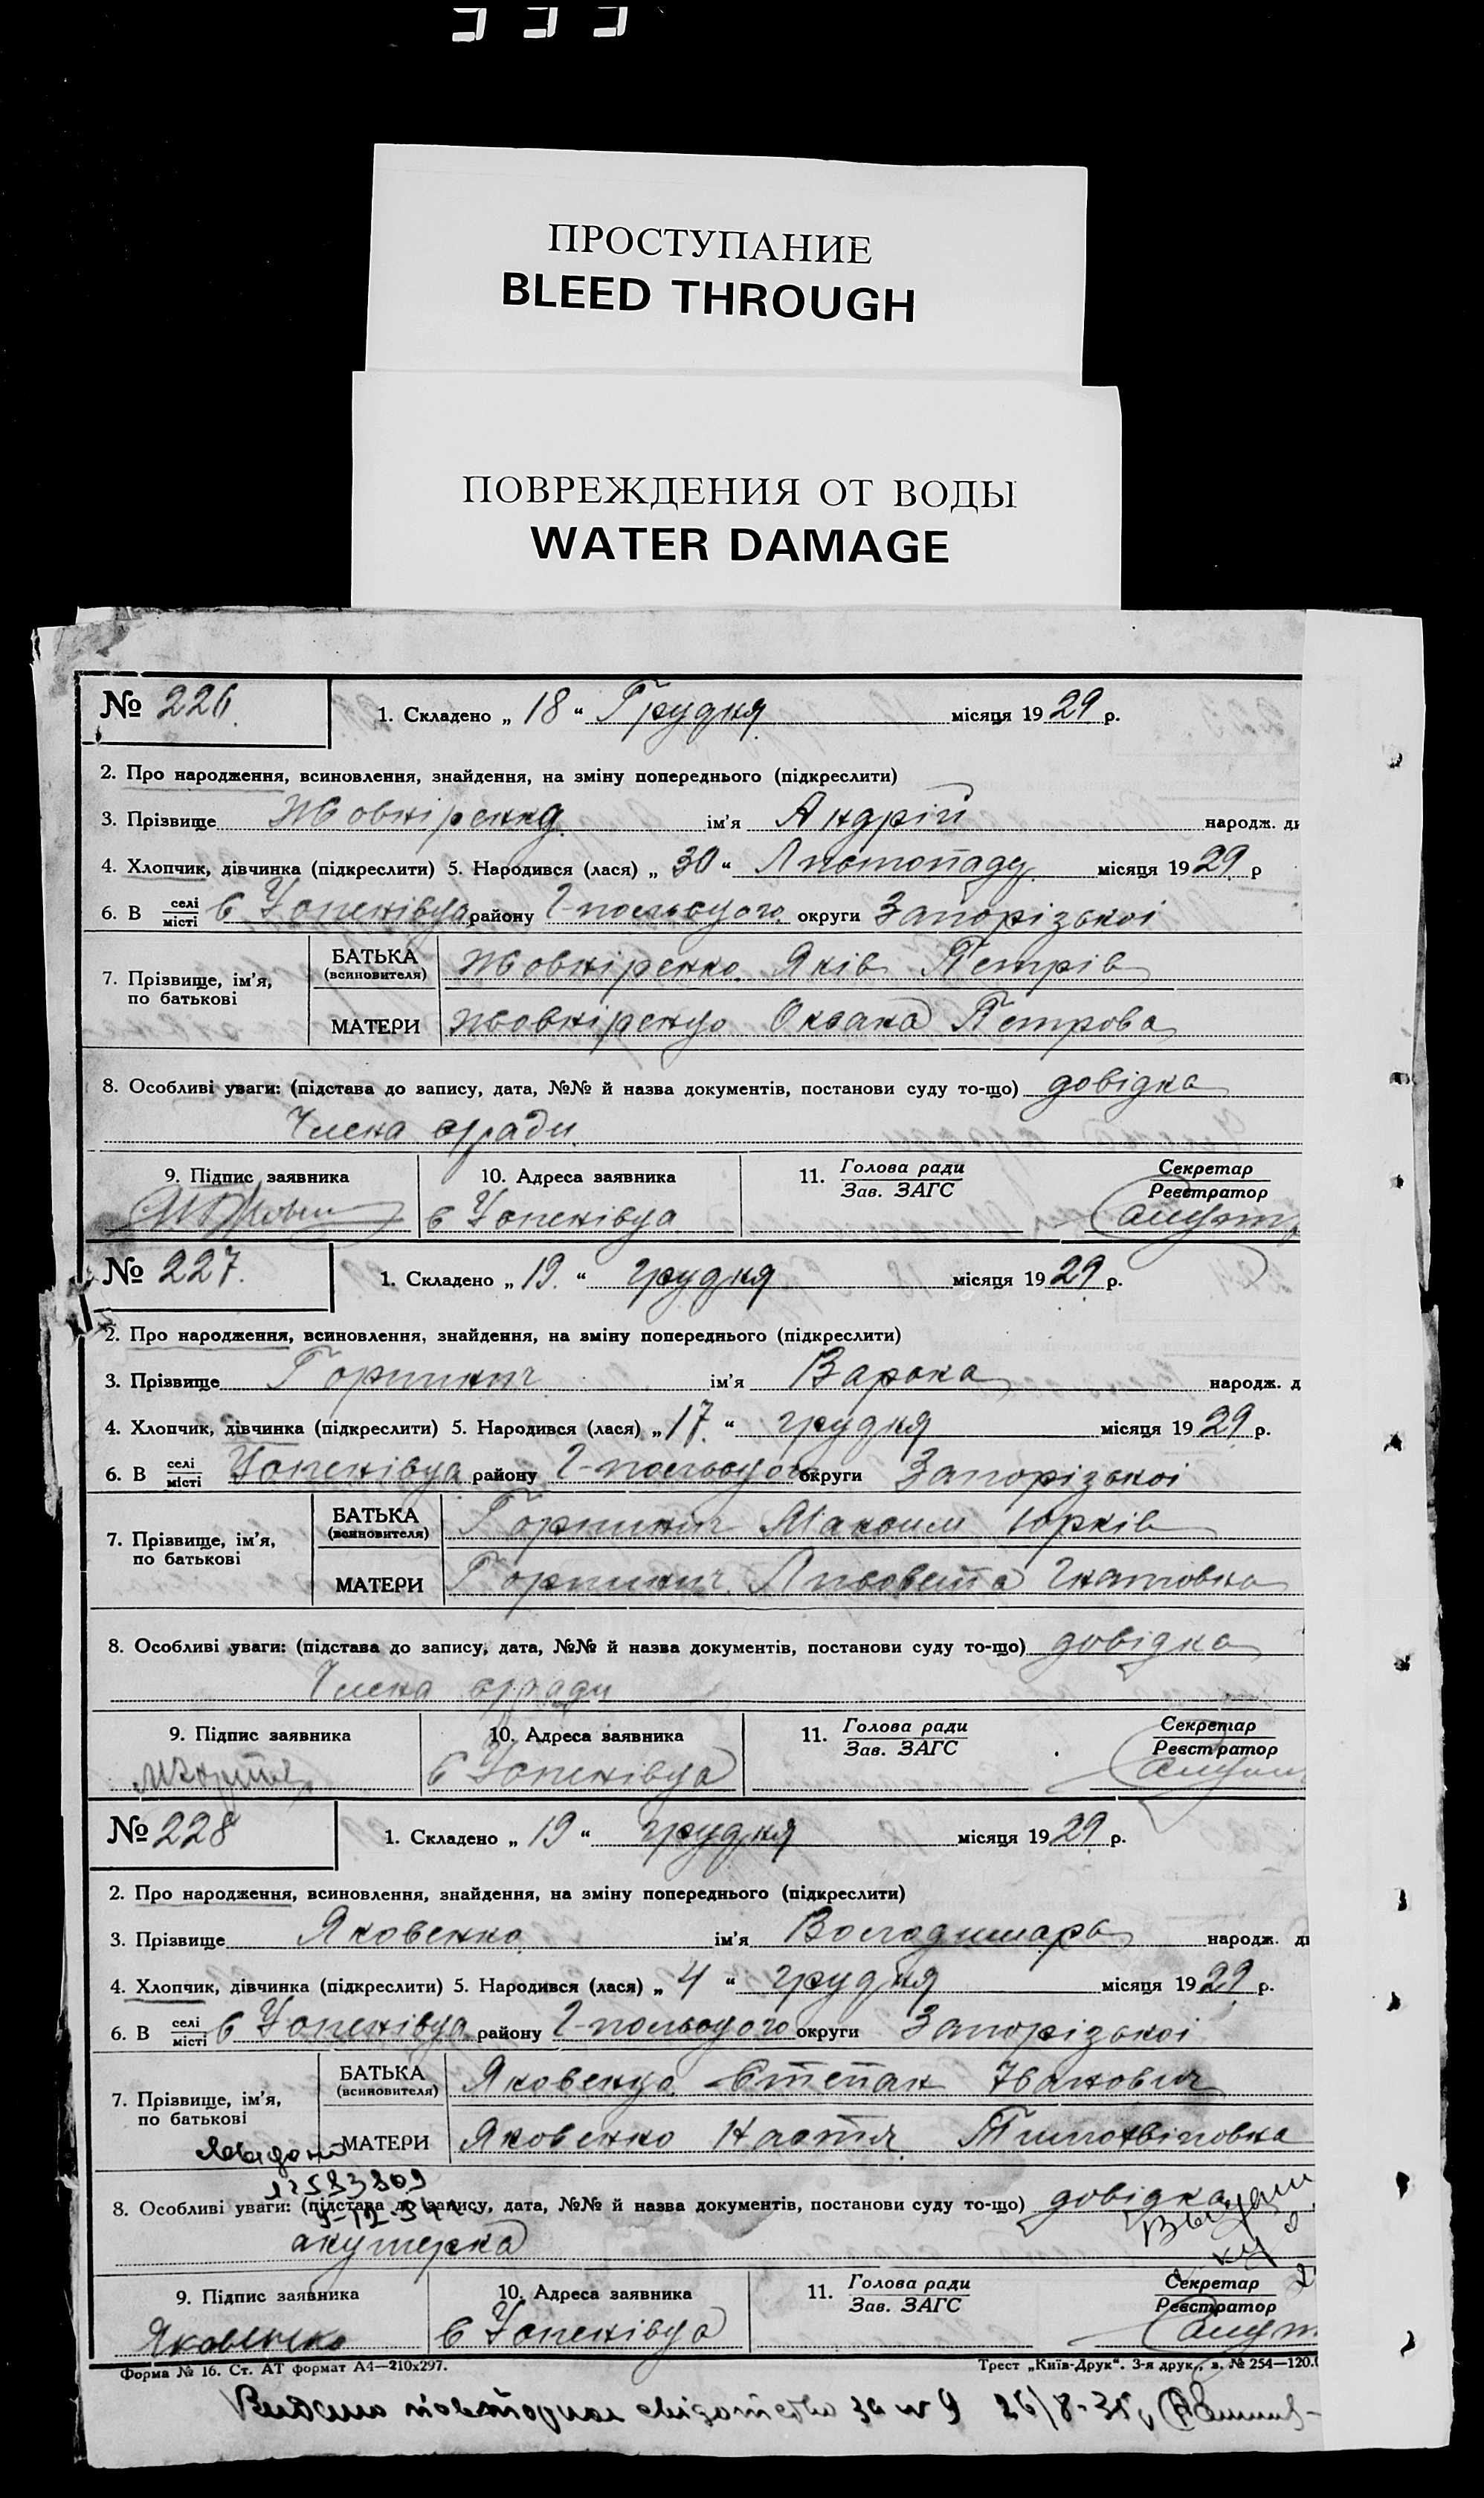 ПРОСТУПАНИЕ
BLEED THROUGH
ПОВРЕЖДЕНИЯ ОТ ВОДЫ
WATER DAMAGE
№ 226. 1. Складено „ 18 “ Грудня місяця 1929 р.
2. Про народження, всиновлення, знайдення, на зміну попереднього (підкреслити)
3. Прізвище Жовніренко ім'я Андрій народж.
4. Хлопчик, дівчинка (підкреслити) 5. Народився (лася) „ 30 “ Листопаду місяця 1929 р
6. В селі/місті району округи Запорізькоі
7. Прізвище, ім'я, по батькові
БАТЬКА (всиновителя) Жовніренко Яків Петрів
МАТЕРИ Жовніренко Оксана Петрова
8. Особливі уваги: (підстава до запису, дата, №№ й назва документів, постанови суду то-що) довідка
Члена сради
9. Підпис заявника 10. Адреса заявника 11. Голова ради/Зав. ЗАГС Секретар/Реєстратор
№ 227. 1. Складено „ 19. “ грудня місяця 1929 р.
2. Про народження, всиновлення, знайдення, на зміну попереднього (підкреслити)
3. Прізвище ім'я Варька народж.
4. Хлопчик, дівчинка (підкреслити) 5. Народився (лася) „ 17. “ грудня місяця 1929 р.
6. В селі/місті району округи Запорізькоі
7. Прізвище, ім'я, по батькові
БАТЬКА (всиновителя) Максим Юрків
МАТЕРИ Лизовета Гнатовна
8. Особливі уваги: (підстава до запису, дата, №№ й назва документів, постанови суду то-що) довідка
Члена сради
9. Підпис заявника 10. Адреса заявника 11. Голова ради/Зав. ЗАГС Секретар/Реєстратор
№ 228 1. Складено „ 19 “ грудня місяця 1929 р.
2. Про народження, всиновлення, знайдення, на зміну попереднього (підкреслити)
3. Прізвище Яковенко ім'я Володимарь народж.
4. Хлопчик, дівчинка (підкреслити) 5. Народився (лася) „ 4 “ грудня місяця 1929 р.
6. В селі/місті району округи Запорізькоі
7. Прізвище, ім'я, по батькові
БАТЬКА (всиновителя) Яковенко Степан Іванович
МАТЕРИ Яковенко Настя
8. Особливі уваги: (підстава до запису, дата, №№ й назва документів, постанови суду то-що) довідка
акушерка
9. Підпис заявника 10. Адреса заявника 11. Голова ради/Зав. ЗАГС Секретар/Реєстратор
Яковенко
Форма № 16. Ст. АТ формат А4—210х297. Трест „Київ-Друк“. 3-я друк., з. № 254—120.